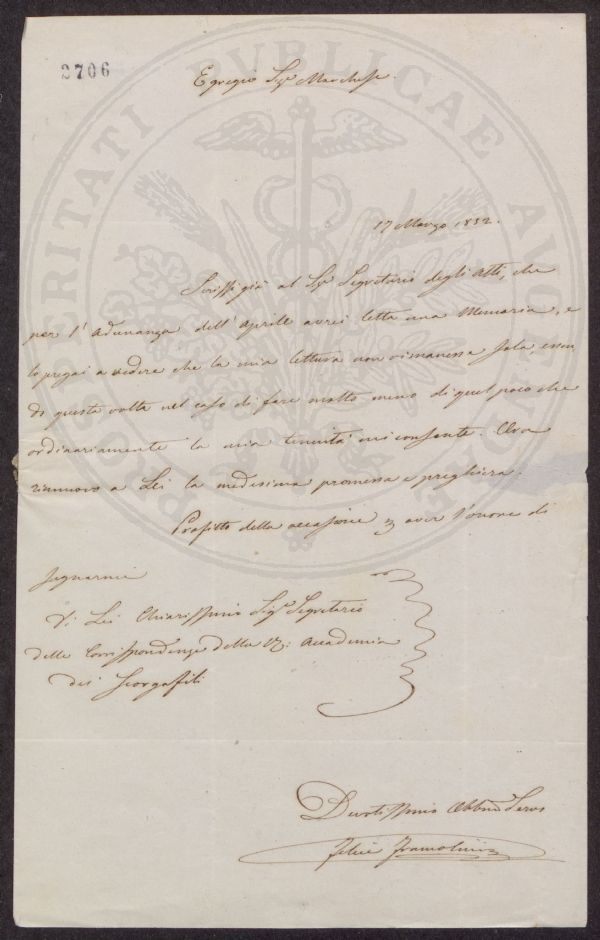 2706
Egregio Sigr Marchese.
17 Marzo 1832.
Scrissi già al Sigr Segretario degli Atti, che
per l'Adunanza dell'Aprile avrei letta una Memoria, e
lo pregai a vedere che la mia lettura non rimanesse sola, essen
do questa volta nel caso di fare molto meno di quel poco che
ordinariamente la mia tenuità mi consente. Ora
rinnovo a Lei la medesima promessa e preghiera.
Profitto della occasione aver l'onore di
segnarmi
Di Lei Chiarissimo Sigr Segretario
delle Corrispondenze della Accademia
dei Georgofili
Devotissimo Obbmo Servo
Felice
PRO PVBLICAE